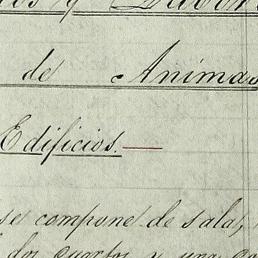 y Labor
de Animas
Edificios.—
se compone de sala,
dos cuartos y una